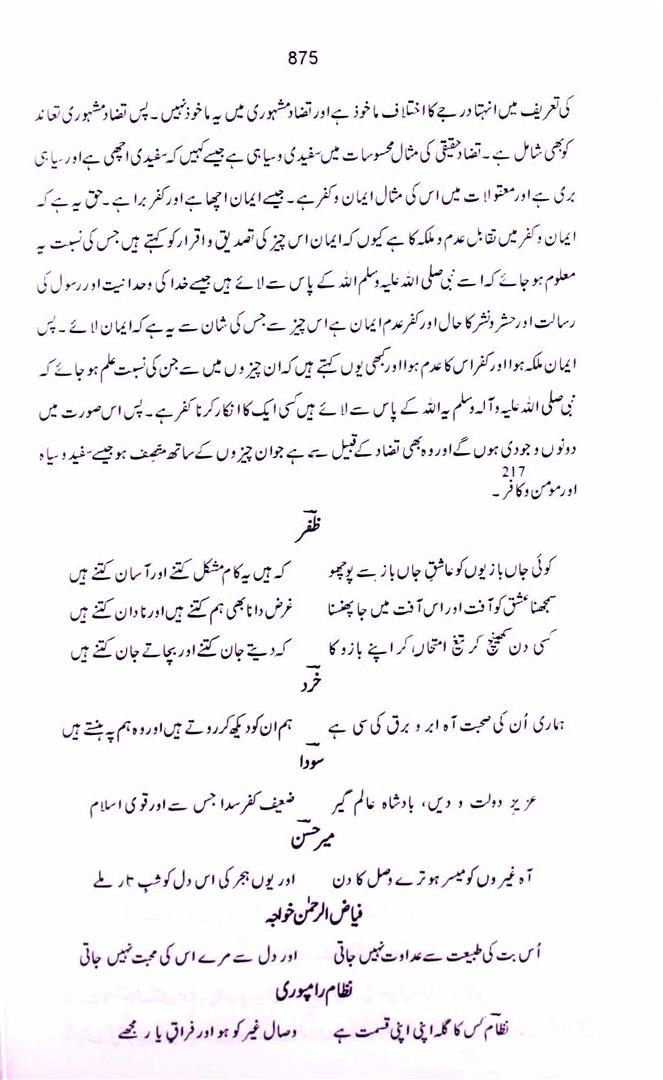 875
کی تعریف میں انتہا درجے کا اختلاف ماخوذ ہے اور تضاد مشہوری میں یہ ماخوذ نہیں ۔ پس تضاد مشہوری تعاند
کو بھی شامل ہے ۔ تضاد حقیقی کی مثال محسوسات میں سفیدی و سیاہی ہے جیسے کہیں کہ سفیدی اچھی ہے اور سیاہی
بری ہے اور معقولات میں اس کی مثال ایمان و کفر ہے ۔ جیسے ایمان اچھا ہے اور کفر برا ہے ۔ حق یہ ہے کہ
ایمان و کفر میں تقابل عدم و ملکہ کا ہے کیوں کہ ایمان اس چیز کی تصدیق و اقرار کو کہتے ہیں جس کی نسبت یہ
معلوم ہو جائے کہ اسے نبی صلی اللہ علیہ وسلم اللہ کے پاس سے لائے ہیں جیسے خدا کی وحدانیت اور رسول کی
رسالت اور حشر و نشر کا حال اور کفر عدم ایمان ہے اس چیز سے جس کی شان سے یہ ہے کہ ایمان لائے ۔ پس
ایمان ملکہ ہوا اور کفر اس کا عدم ہوا اور کبھی یوں کہتے ہیں کہ ان چیزوں میں سے جن کی نسبت علم ہو جائے کہ
نبی صلی اللہ علیہ و آلہ وسلم یہ اللہ کے پاس سے لائے ہیں کسی ایک کا انکار کرنا کفر ہے ۔ پس اس صورت میں
دونوں وجودی ہوں گے اور وہ بھی تضاد کے قبیل سے ہے جو ان چیزوں کے ساتھ متصف ہو جیسے سفید و سیاہ
اور مومن و کافر ۔ 217
ظفر
کوئی جاں بازیوں کو عاشقِ جاں باز سے پوچھو کہ ہیں یہ کام مشکل کتنے اور آسان کتنے ہیں
سمجھنا عشق کو آفت اور اس آفت میں جا پھنسنا غرض دانا بھی ہم کتنے ہیں اور نادان کتنے ہیں
کسی دن کھینچ کر تیغ امتحاں کر اپنے بازو کا کہ دیتے جان کتنے اور بچاتے جان کتنے ہیں
خرد
ہماری اُن کی صحبت آہ ابر و برق کی سی ہے ہم ان کو دیکھ کر روتے ہیں اور وہ ہم پہ ہنستے ہیں
سودا
عزیزِ دولت و دیں، بادشاہ عالم گیر ضعیف کفر سدا جس سے اور قوی اسلام
میر حسن
آہ غیروں کو میسر ہو ترے وصل کا دن اور یوں ہجر کی اس دل کو شبِ تار ملے
فیاض الرحمٰن خواجہ
اُس بت کی طبیعت سے عداوت نہیں جاتی اور دل سے مرے اس کی محبت نہیں جاتی
نظام رامپوری
نظام کس کا گلہ اپنی اپنی قسمت ہے وصال غیر کو ہو اور فراقِ یار مجھے